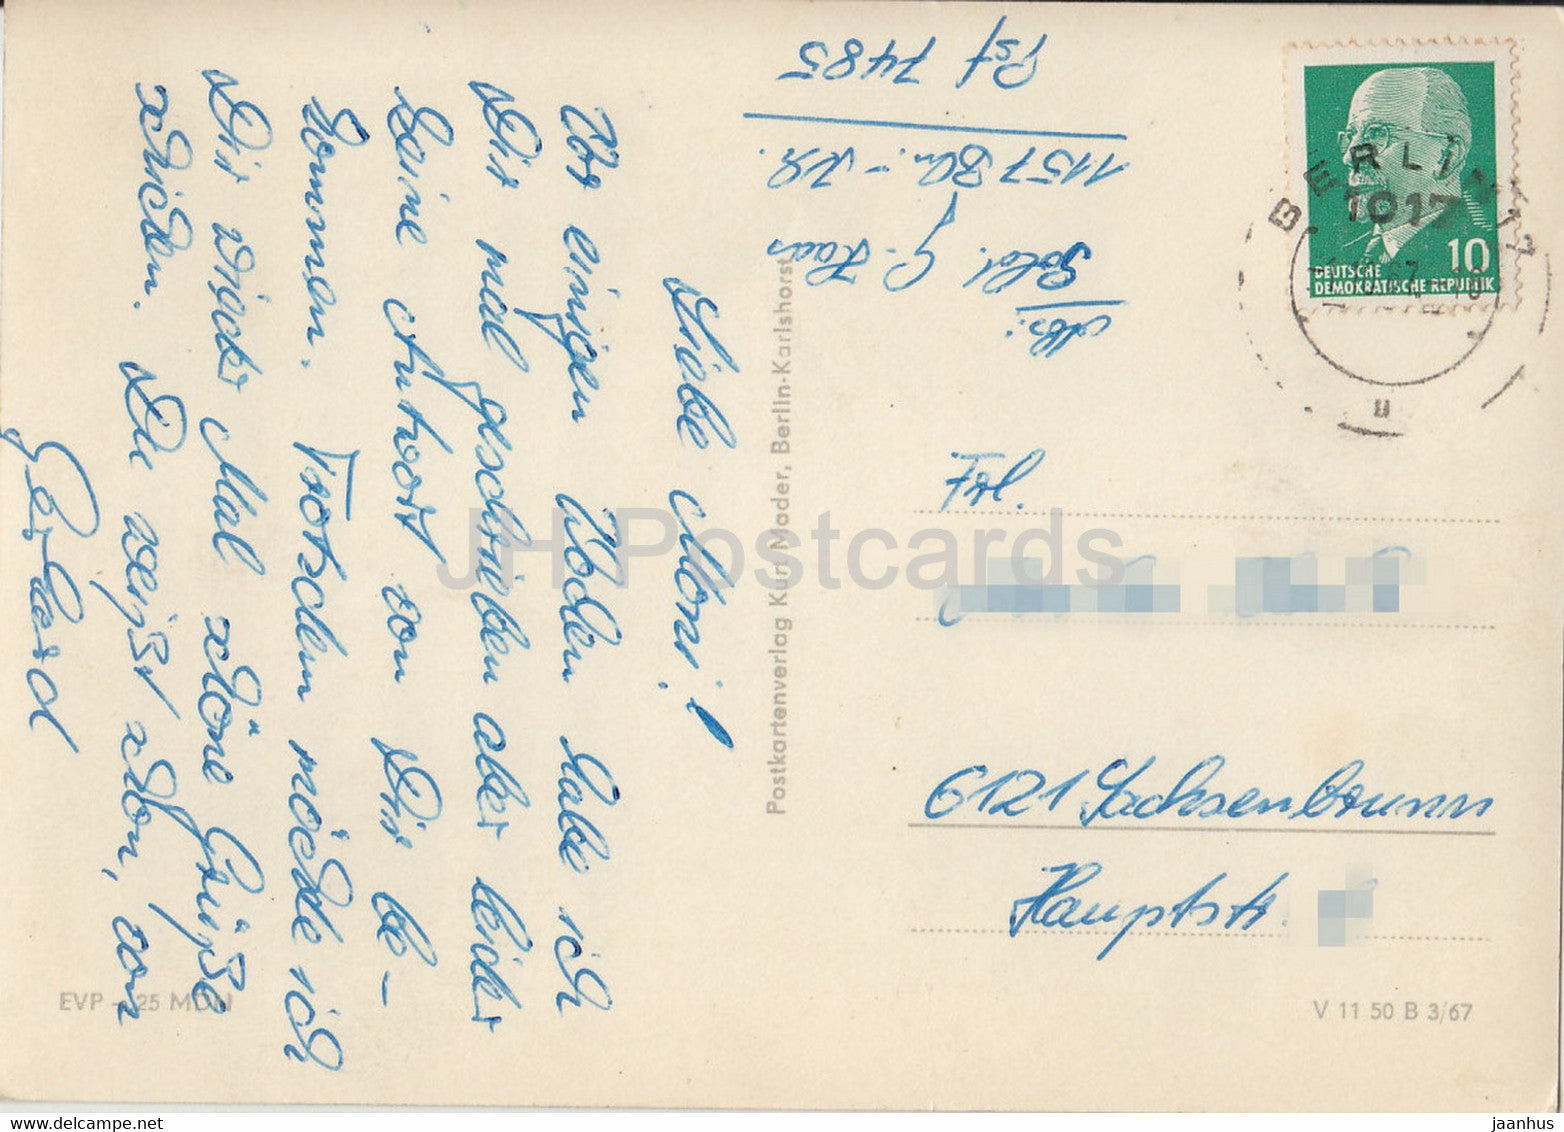 Liebe Moni!
Vor einigen Wochen habe ich
Dir mal geschrieben aber leider
keine Antwort von Dir be-
kommen. Trotzdem möchte ich
Dir wieder Mal schöne Grüße
schicken. Du weißt schon, von
Gerhard
Abs:
Sold. G. Haas
1157 Bln.-Kh.
Psf 7485
Postkartenverlag Kurt Mader, Berlin-Karlshorst
BERLIN 17
1017
10
DEUTSCHE
DEMOKRATISCHE REPUBLIK
Frl.
6121 Sachsenbrunn
Hauptstr.
EVP -,25 MDN
V 11 50 B 3/67
JH Postcards
www.delcampe.net
jaanhus